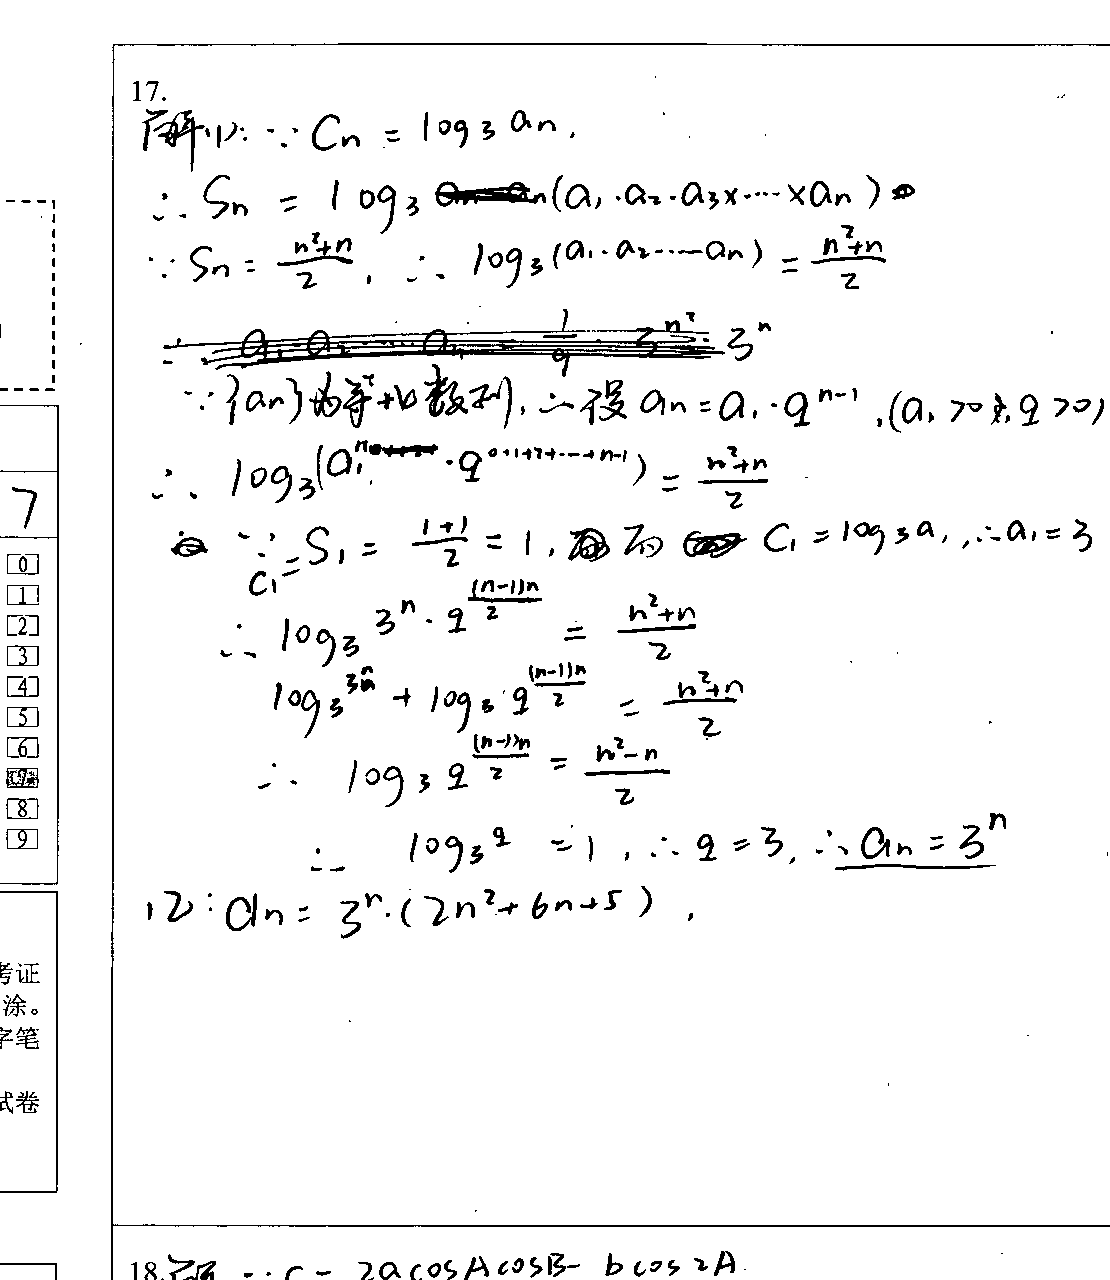 17.
解(1): ∵ Cn = log₃ an,
∴ Sn = log₃ (a₁·a₂·a₃×……×an)
∵ Sn = (n²+n)/2, ∴ log₃(a₁·a₂……an) = (n²+n)/2
∵{an}为等比数列, ∴设 an = a₁·q^(n-1), (a₁>0, q>0)
∴ log₃(a₁^n·q^(0+1+2+…+n-1)) = (n²+n)/2
∵ C₁ = S₁ = (1+1)/2 = 1, 而 C₁ = log₃a₁, ∴a₁=3
∴ log₃ 3^n·q^((n-1)n/2) = (n²+n)/2
log₃ 3^n + log₃ q^((n-1)n/2) = (n²+n)/2
∴ log₃ q^((n-1)n/2) = (n²-n)/2
∴ log₃ q = 1, ∴ q=3, ∴ an = 3^n
(2): dn = 3^n·(2n²+6n+5),
7
0
1
2
3
4
5
6
8
9
考证
涂。
字笔
试卷
18. ∵ C = 2acosAcosB - bcos2A